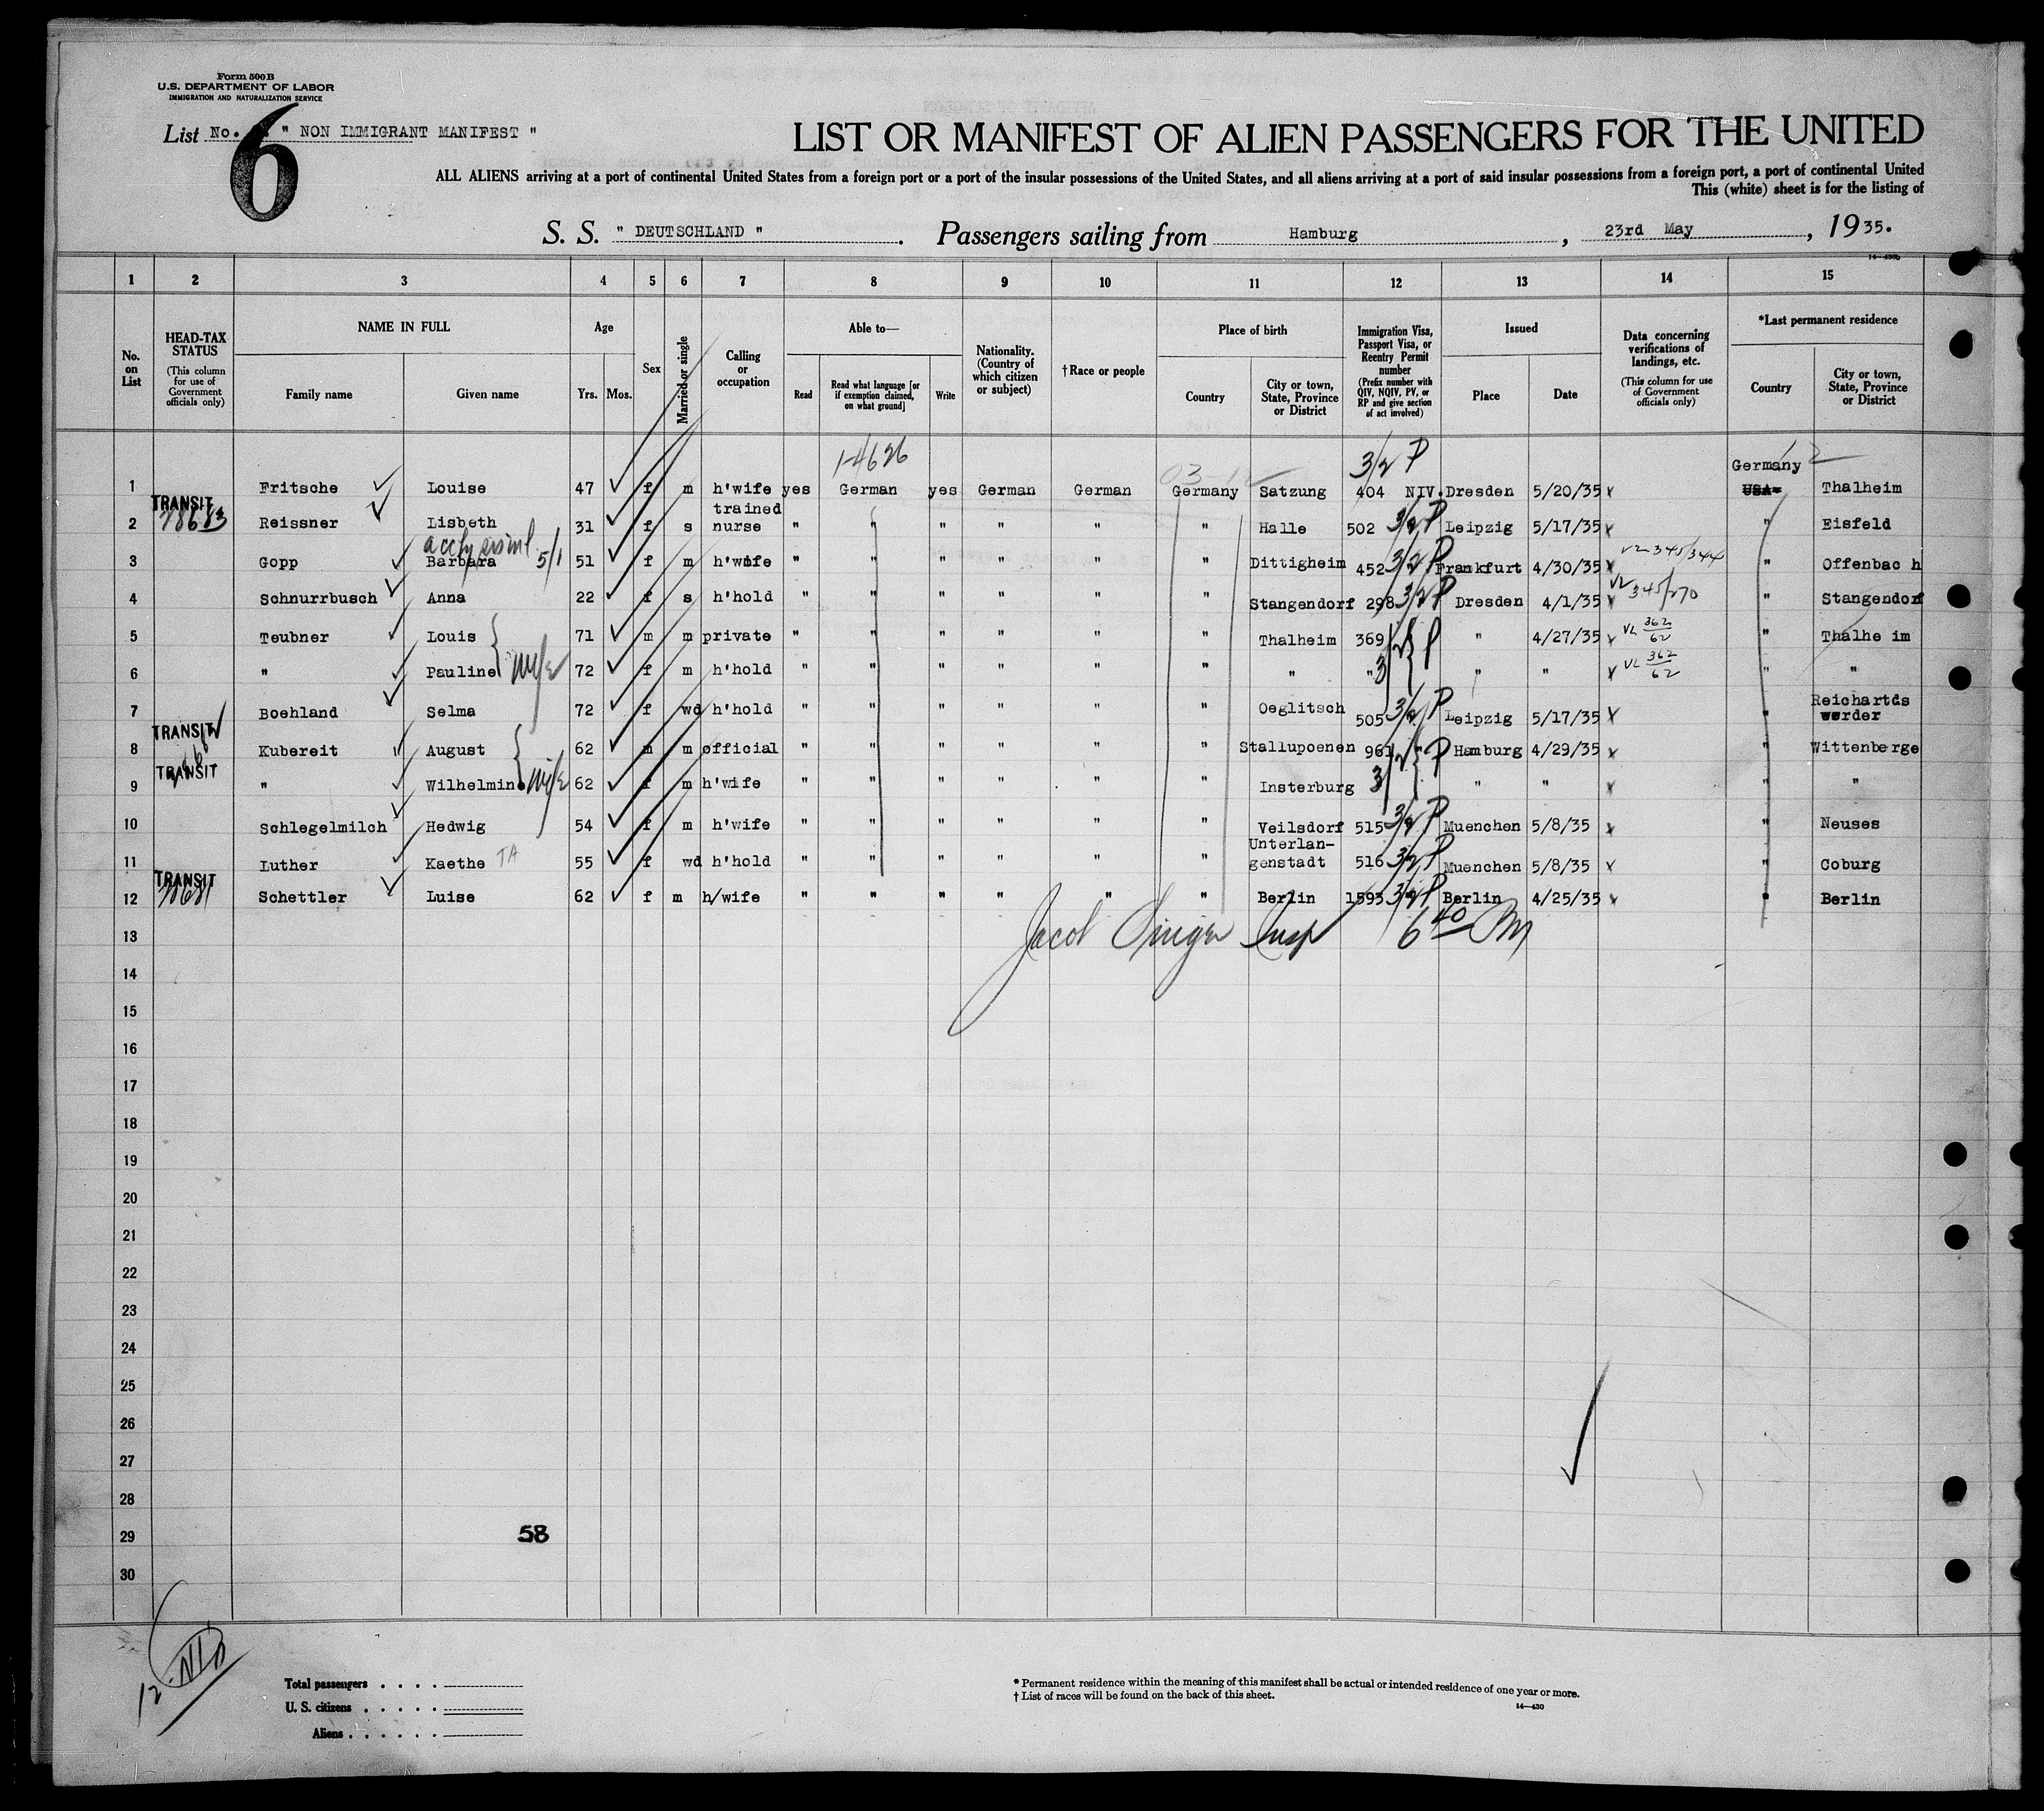 Form 500 B
U.S. DEPARTMENT OF LABOR
IMMIGRATION AND NATURALIZATION SERVICE
List No. " NON IMMIGRANT MANIFEST "
6
LIST OR MANIFEST OF ALIEN PASSENGERS FOR THE UNITED
ALL ALIENS arriving at a port of continental United States from a foreign port or a port of the insular possessions of the United States, and all aliens arriving at a port of said insular possessions from a foreign port, a port of continental United
This (white) sheet is for the listing of
S. S. " DEUTSCHLAND " . Passengers sailing from Hamburg , 23rd May , 1935.
1 2 3 4 5 6 7 8 9 10 11 12 13 14 15
No. on List
HEAD-TAX STATUS (This column for use of Government officials only)
NAME IN FULL
Family name Given name
Age
Yrs. Mos.
Sex
Married or single
Calling or occupation
Able to—
Read Read what language [or if exemption claimed, on what ground] Write
Nationality. (Country of which citizen or subject)
†Race or people
Place of birth
Country City or town, State, Province or District
Immigration Visa, Passport Visa, or Reentry Permit number (Prefix number with QIV, NQIV, PV, or RP and give section of act involved)
Issued
Place Date
Data concerning verifications of landings, etc. (This column for use of Government officials only)
*Last permanent residence
Country City or town, State, Province or District
1-4626 03-12 3/2 P
1 Fritsche Louise 47 f m h'wife yes German yes German German Germany Satzung 404 NIV. Dresden 5/20/35 Germany USA Thalheim
2 TRANSIT 78683 Reissner Lisbeth 31 f s trained nurse " " " " " " Halle 502 3/2 P Leipzig 5/17/35 " Eisfeld
3 Gopp Barbara 5/1 51 f m h'wife " " " " " " Dittigheim 452 3/2 P Frankfurt 4/30/35 VL 345/344 " Offenbac h
4 Schnurrbusch Anna 22 f s h'hold " " " " " " Stangendorf 298 3/2 P Dresden 4/1/35 VL 345/270 " Stangendorf
5 Teubner Louis 71 m m private " " " " " " Thalheim 369 3/2 P " 4/27/35 VL 362/62 " Thalhe im
6 " Pauline wife 72 f m h'hold " " " " " " " " " " VL 362/62 " "
7 Boehland Selma 72 f wd h'hold " " " " " " Oeglitsch 505 3/2 P Leipzig 5/17/35 " Reichartds werder
8 TRANSIT Kubereit August 62 m m official " " " " " " Stallupoenen 961 3/2 P Hamburg 4/29/35 " Wittenberge
9 TRANSIT " Wilhelmine wife 62 f m h'wife " " " " " " Insterburg " " " " "
10 Schlegelmilch Hedwig 54 f m h'wife " " " " " " Veilsdorf 515 3/2 P Muenchen 5/8/35 " Neuses
11 Luther Kaethe TA 55 f wd h'hold " " " " " " Unterlan-genstadt 516 3/2 P Muenchen 5/8/35 " Coburg
12 TRANSIT 78681 Schettler Luise 62 f m h/wife " " " " " " Berlin 1593 3/2 P Berlin 4/25/35 " Berlin
13 Jacob Singer Insp 6 40 PM
14
15
16
17
18
19
20
21
22
23
24
25
26
27
28
29 58
30
12 NID
Total passengers . . . .
U. S. citizens . . . . .
Aliens . . . . . .
* Permanent residence within the meaning of this manifest shall be actual or intended residence of one year or more.
† List of races will be found on the back of this sheet.
14—430